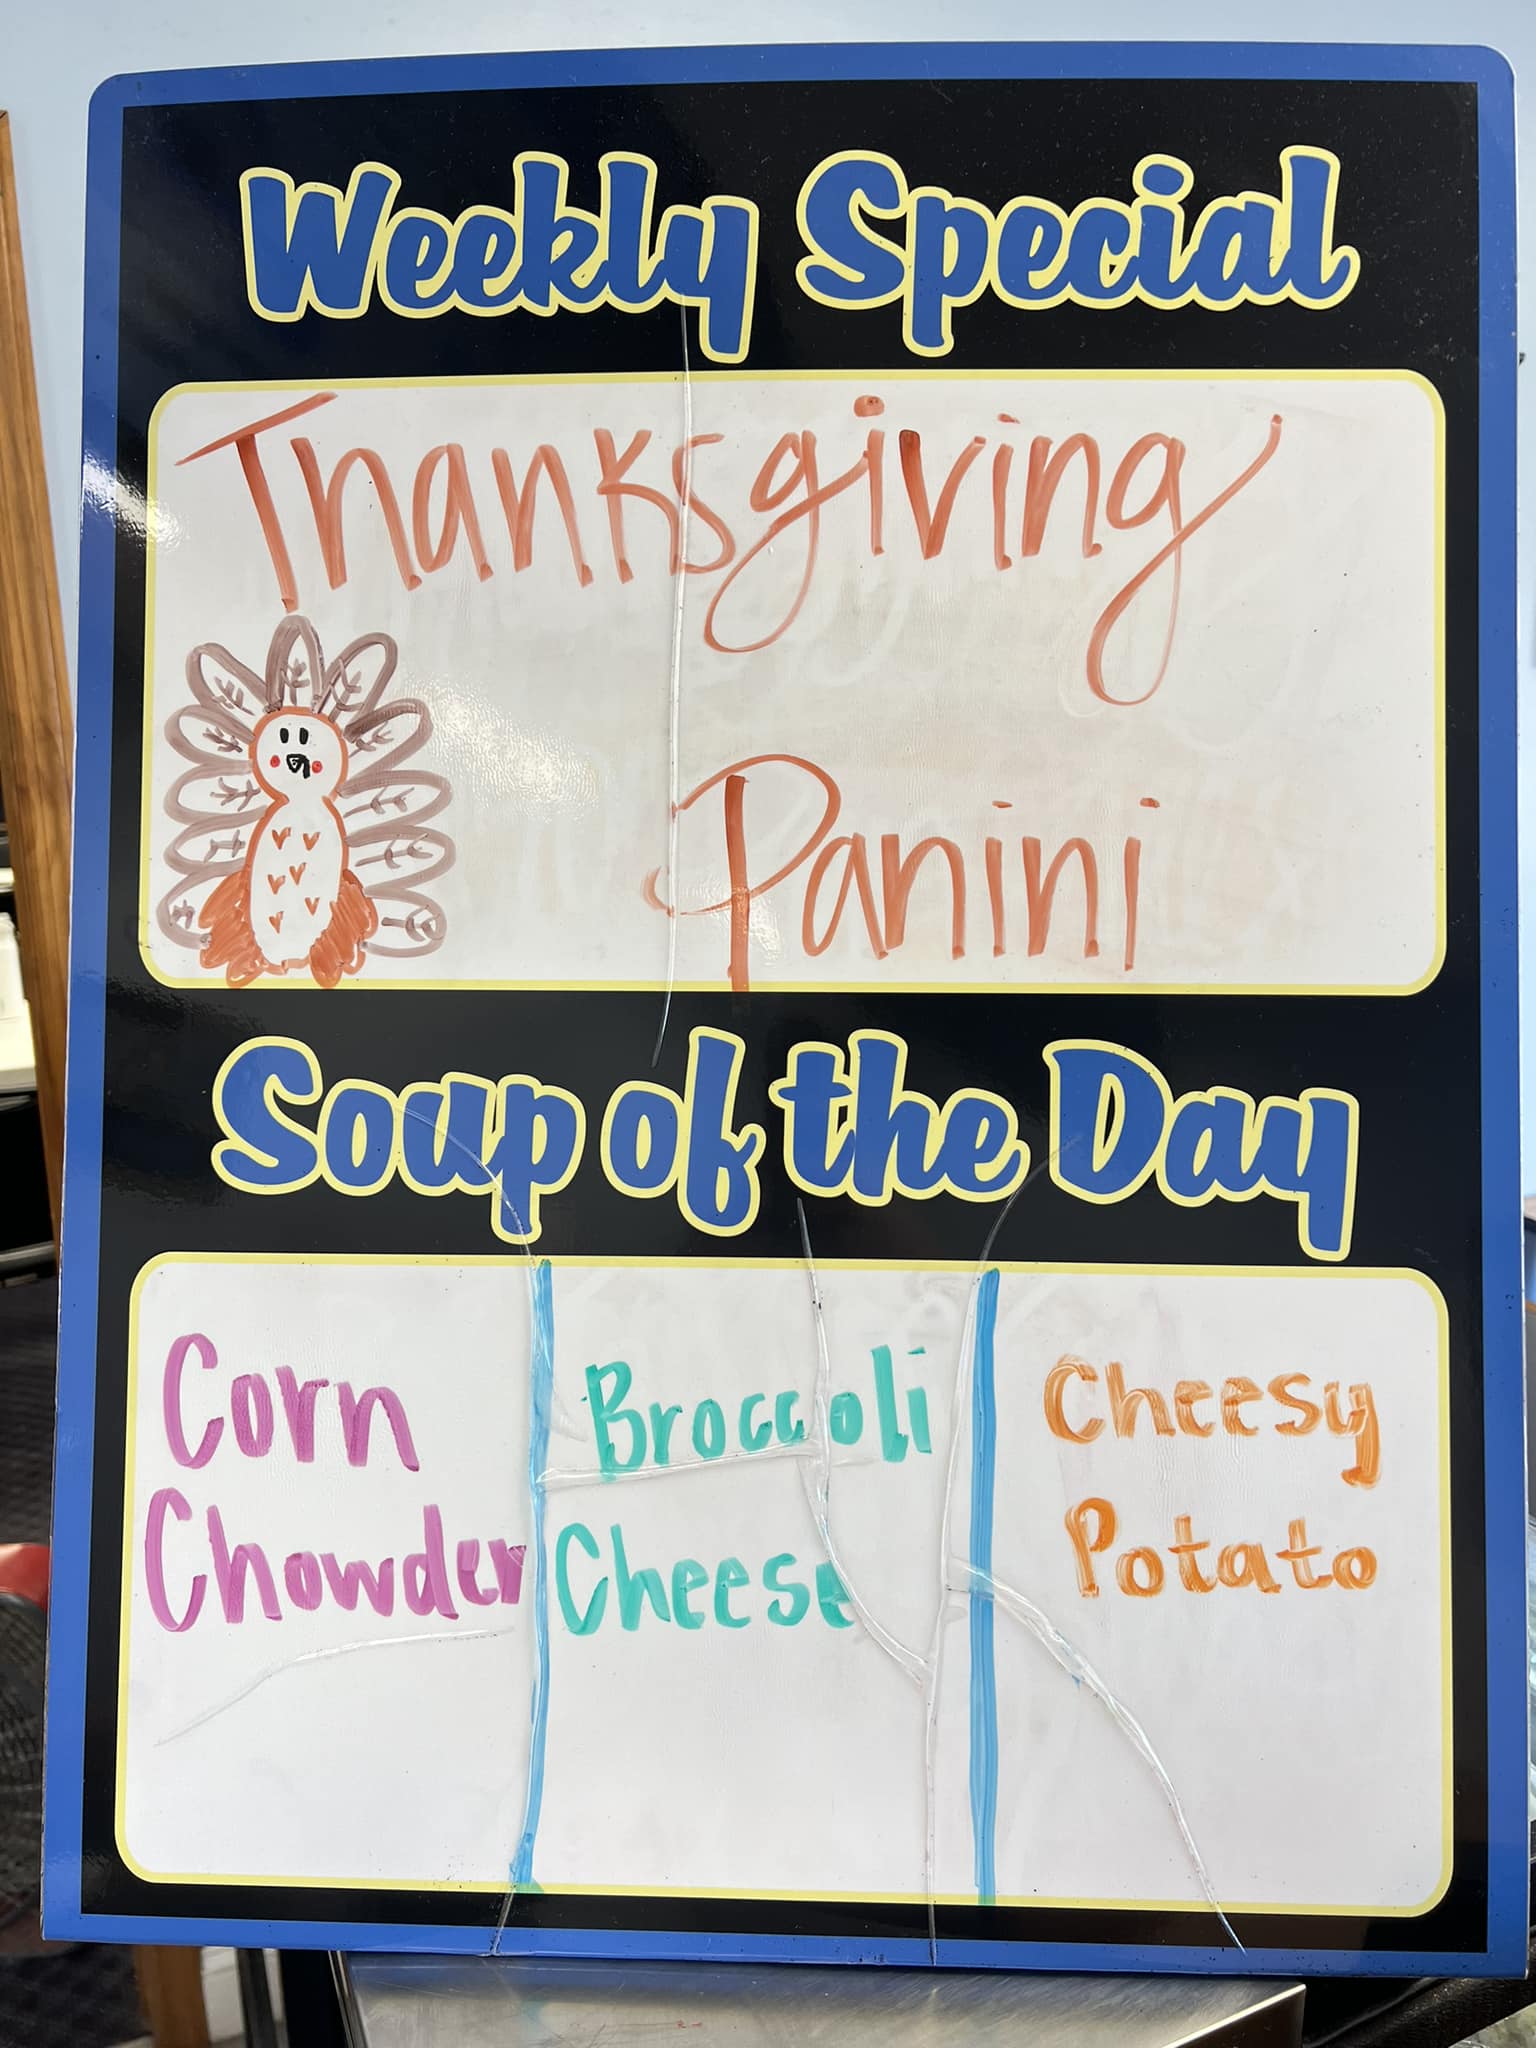 Weekly Special
Thanksgiving
Panini
Soup of the Day
Corn
Chowder
Broccoli
Cheese
Cheesy
Potato